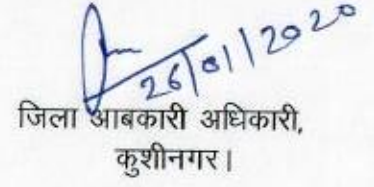 26/01/2020
जिला आबकारी अधिकारी,
कुशीनगर।